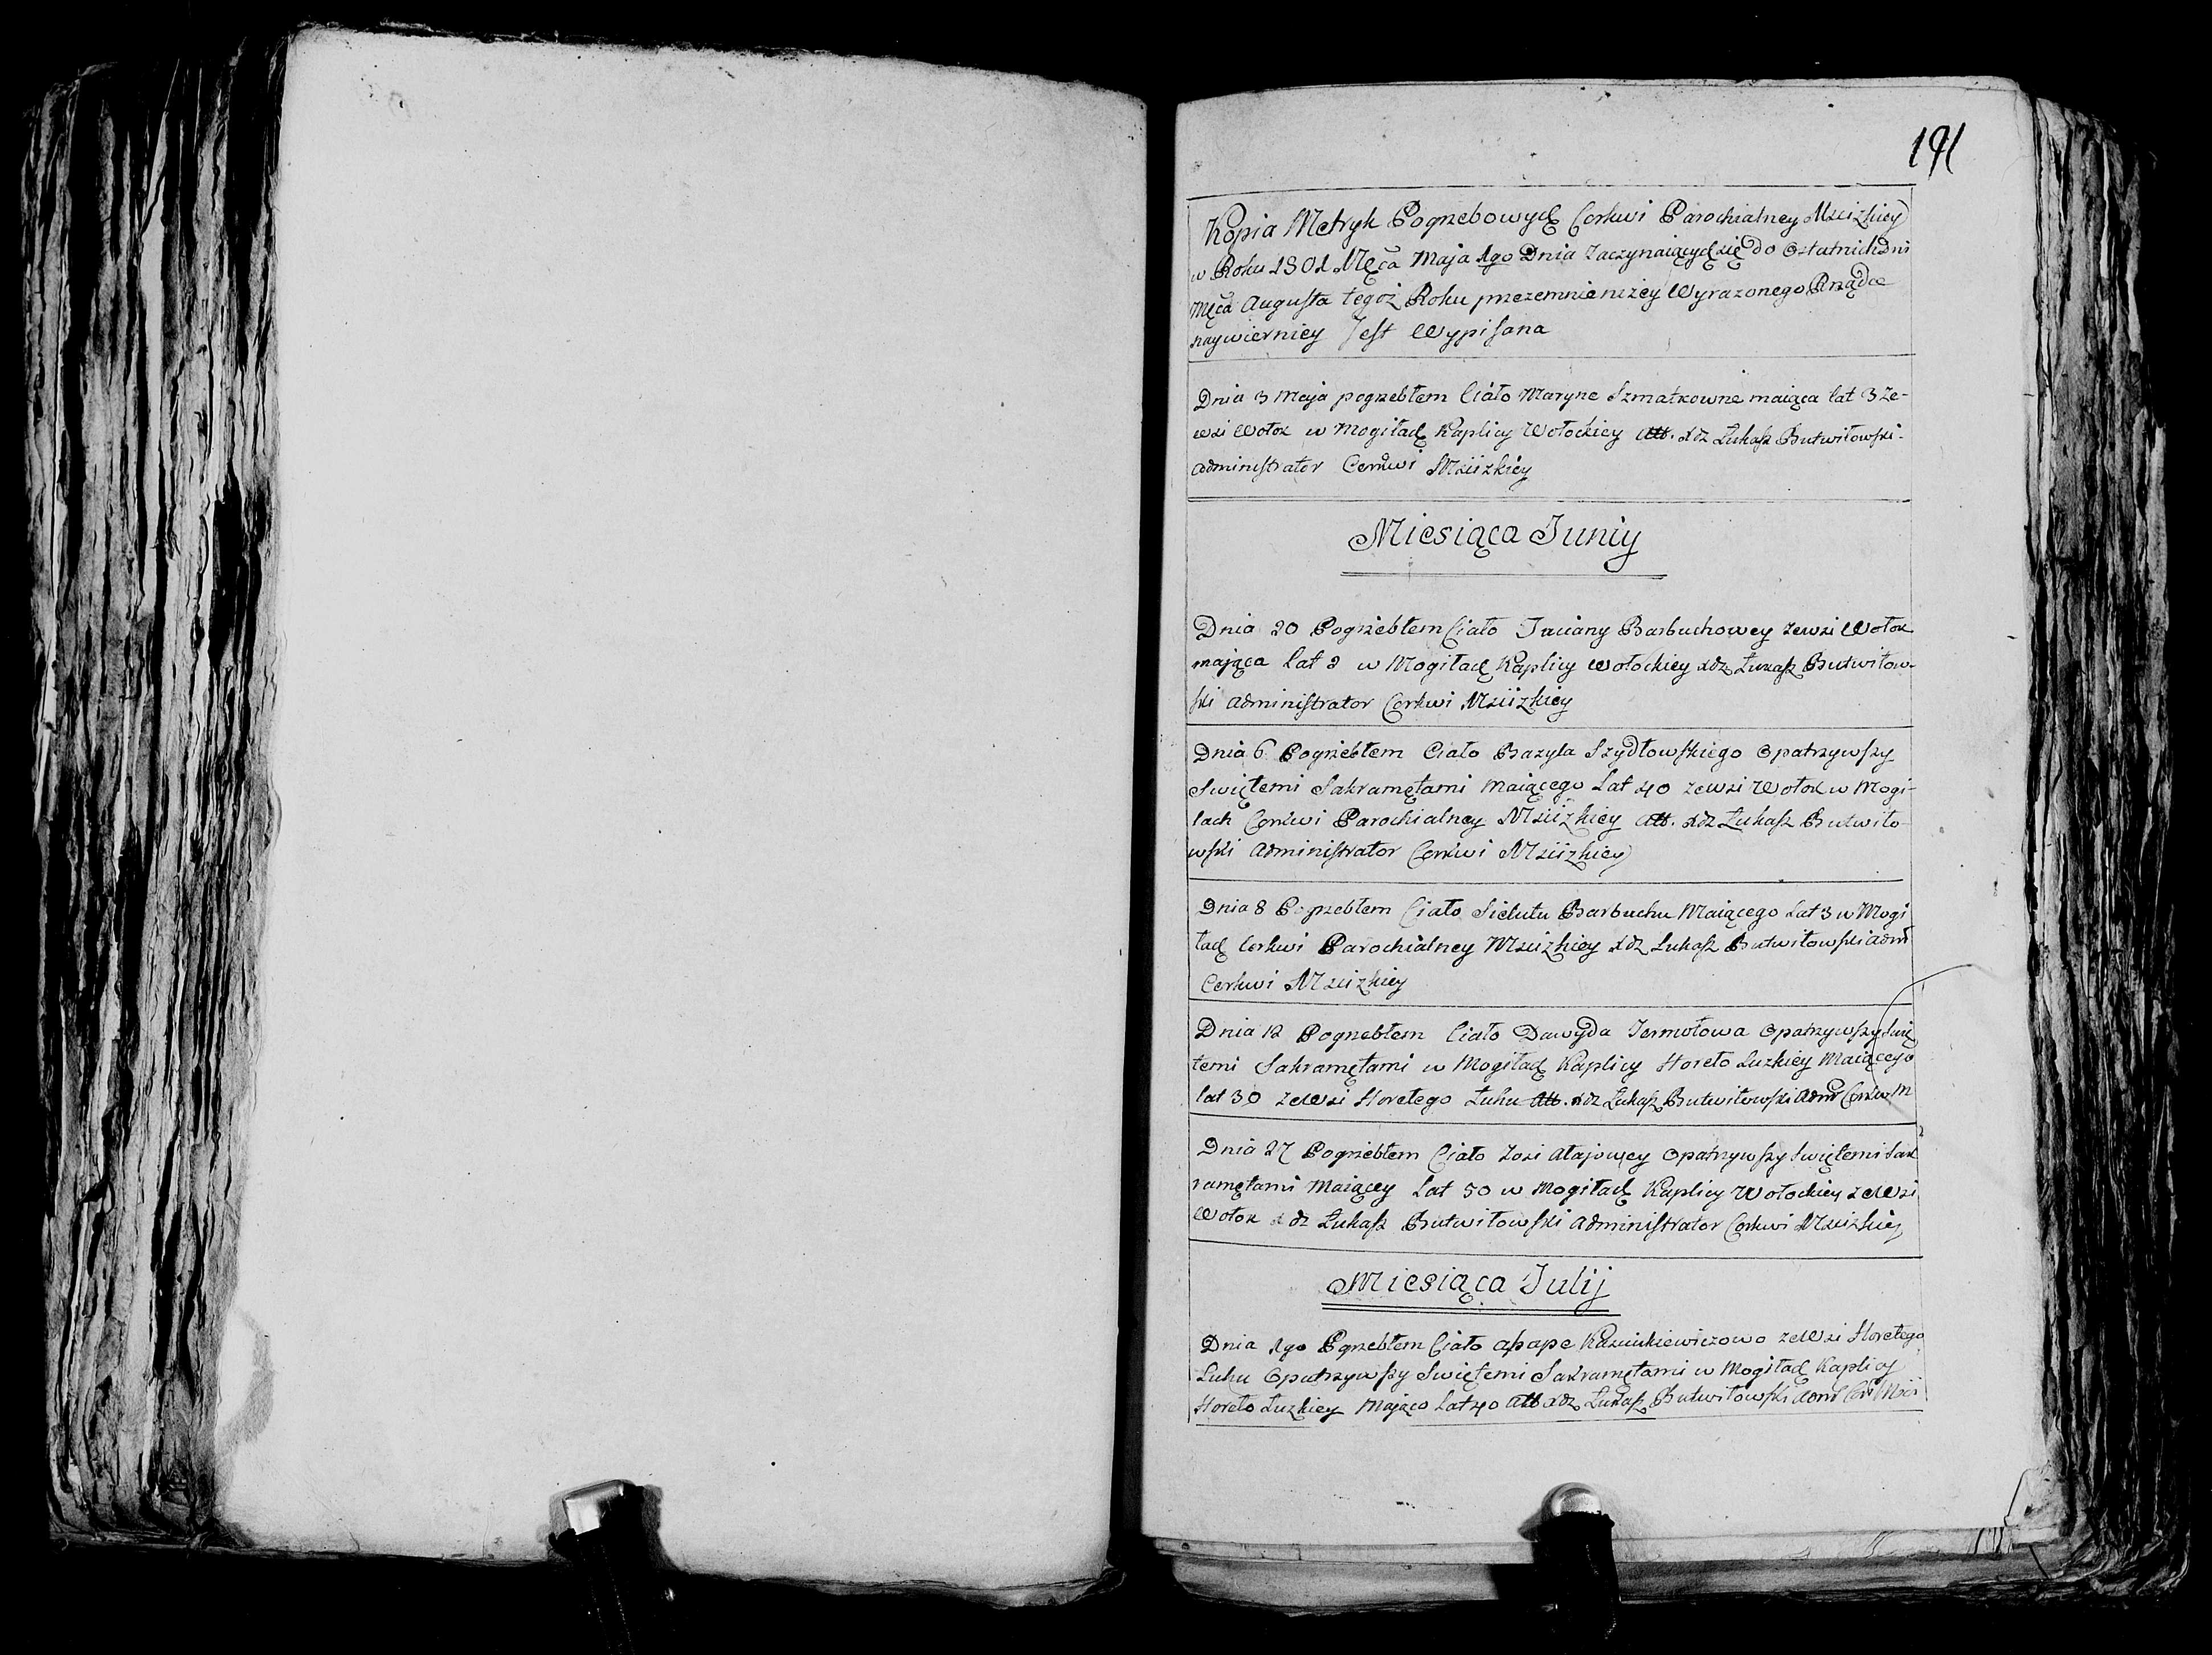 191
Kopia Metryk Pogrzebowych Cerkwi Parochialney Mściżkiey
w Roku 1801 Męca Maja 1go Dnia Zaczynaiących się do Ostatnich Dni
Męca Augusta tegoż Roku przezemnie niżey Wyrazonego Rządce
naywierniey Jest Wypisana
Dnia 3 Maja pogrzebłem Ciało Maryne Szmatkowne maiąca lat 3 Ze-
wsi Wołok w Mogiłach Kaplicy Wołockiey Att. Xdz Łukasz Butwiłowski
Administrator Cerkwi Mściżkiey
Miesiąca Juniy
Dnia 20 Pogrzebłem Ciało Taciany Barbuchowey zewsi Wołok
mająca Lat 2 w Mogiłach Kaplicy Wołockiey Xdz Łukasz Butwiłow-
ski Administrator Cerkwi Mściżkiey
Dnia 6 Pogrzebłem Ciało Bazyla Szydłowskiego Opatrzywszy
Swiętemi Sakramętami Maiącego Lat 40 zewsi Wołok w Mogi-
łach Cerkwi Parochialney Mściżkiey Att. Xdz Łukasz Butwiło-
wski Administrator Cerkwi Mściżkiey
Dnia 8 Pogrzebłem Ciało Barbuchu Maiącego Lat 3 w Mogi
łach Cerkwi Parochialney Mściżkiey Xdz Łukasz Butwiłowski Admr
Cerkwi Mściżkiey
Dnia 12 Pogrzebłem Ciało Dawyda Jermołowa Opatrzywszy Swię
temi Sakramętami w Mogiłach Kaplicy Horeło Łuzkiey Maiącego
lat 30 zewsi Horełego Łuhu Att. Xdz Łukasz Butwiłowski Admr Cerkw M
Dnia 27 Pogrzebłem Ciało Zosi Atajowey Opatrzywszy Swiętemi Sak
ramętami Maiącey Lat 50 w Mogiłach Kaplicy Wołockiey zewsi
Wołok Xdz Łukasz Butwiłowski Administrator Cerkwi Mściżkiey
Miesiąca Julij
Dnia 1go Pgrzebłem Ciało zewsi Horełego
Łuhu Opatrzywszy Swiętemi Sakramętami w Mogiłach Kaplicy
Horeło Łuzkiey Mająco Lat 40 Att Xdz Łukasz Butwiłowski Admr